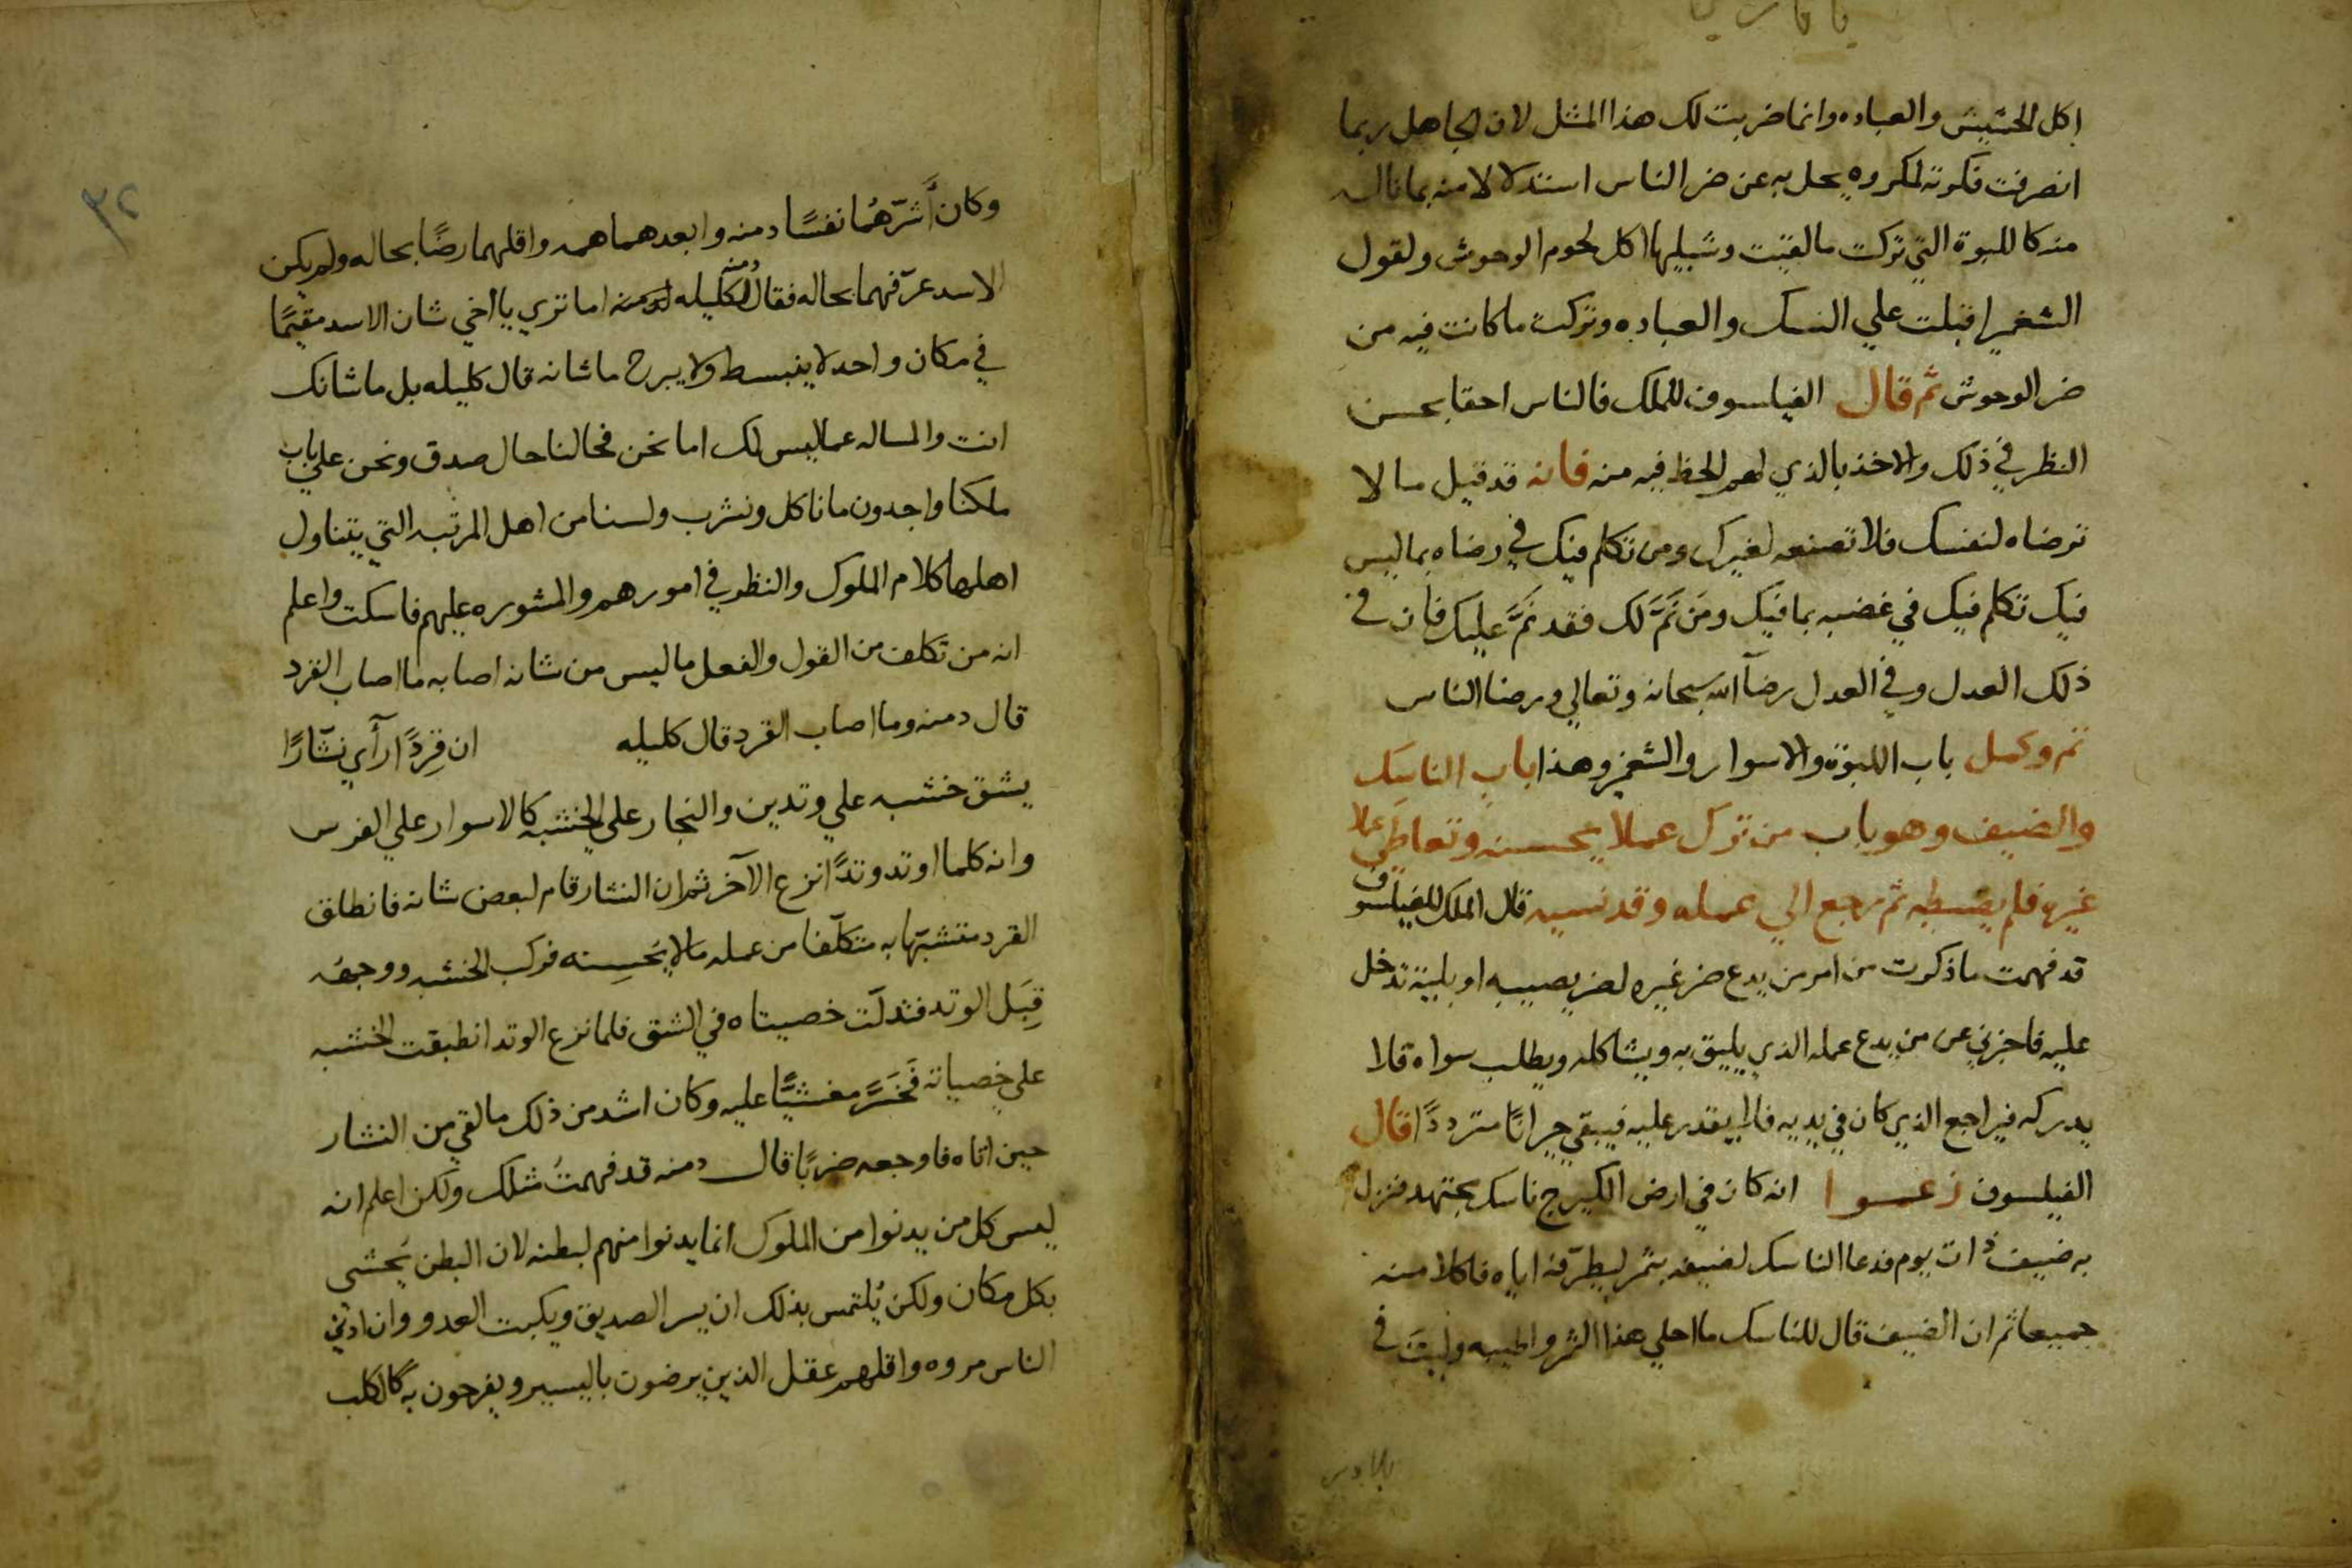 اكل الحشيش والعباده وانما ضربت لك هذا المثل لان الجاهل ربما
انصرفت فكرته لمكروه يحل به عن ضر الناس استدلالا منه بما ناله
منه كاللبوة التي تركت ما لقيت وشبليها اكل لحوم الوحوش ولقول
الشغبر اقبلت علي النسك والعباده وتركت ما كانت فيه من
ضر الوحوش ثم قال الفيلسوف للملك فالناس احقا بحسن
النظر في ذلك والاخذ بالذي لهم الحظ فيه منه فانه قد قيل ما لا
ترضاه لنفسك فلا تصنعه لغيرك ومن تكلم فيك في رضاه بما ليس
فيك تكلم فيك في غضبه بما فيك ومَن نَمَّ لك فقد نَمَّ عليك فان في
ذلك العدل وفي العدل رضآ الله سبحانه وتعالي ورضا الناس
تم وكمل باب اللبوة والاسوار والشغبر وهذا باب الناسك
والضيف وهو باب من ترك عملا يحسنه وتعاطي عملا
غيره فلم يضبطه ثم رجع الي عمله وقد نسيه قال الملك للفيلسوف
قد فهمت ما ذكرت من امر من يدع ضر غيره لضر يصيبه او بلية تدخل
عليه فاخبرني عن من يدع عمله الذي يليق به ويشاكله ويطلب سواه فلا
يدركه فيراجع الذي كان في يديه فلا يقدر عليه فيبقي حيرانًا مترددًا قال
الفيلسوف زعموا انه كان في ارض الكيرج ناسك مجتهد فنزل
به ضيف ذات يوم فدعا الناسك لضيفه بتمر ليطرّفه اياه فاكلا منه
جميعا ثم ان الضيف قال للناسك ما احلي هذا التمر واطيبه وليتَ في
٣٢
وكان أَشَرّهُما نفسًا دمنه وابعدهما همه واقلهما رضًا بحاله ولم يكن
الاسد عرّفهما بحاله فقال دمنه لكليله اما تري يا اخي شان الاسد مقيمًا
في مكان واحد لا ينبسط ولا يبرح ما شانه قال كليله بل ما شانك
انت والمساله عما ليس لك اما نحن فحالنا حال صدق ونحن علي باب
ملكنا واجدون ما ناكل ونشرب ولسنا من اهل المرتبه التي يتناول
اهلها كلام الملوك والنظر في امورهم والمشوره عليهم فاسكت واعلم
انه من تكلف من القول والفعل ما ليس من شانه اصابه ما اصاب القرد
قال دمنه وما اصاب القرد قال كليله ان قِردًا رآي نشّارًا
يشق خشبه علي وتدين والنجار علي الخشبه كالاسوار علي الفرس
وانه كلما اوتد وتدًا نزع الآخر ثم ان النشار قام لبعض شانه فانطلق
القرد متشبّها به متكلّفا من عمله ما لا يُحسِنه فركب الخشبه ووجهه
قِبَل الوتد فتدلّت خصيتاه في الشق فلما نزع الوتد انطبقت الخشبه
علي خصيانه فَخَرَّ مغشيًّا عليه وكان اشد من ذلك ما لقي من النشار
حين اتاه فاوجعه ضربًا قال دمنه قد فهمتُ مثلك ولكن اعلم انه
ليس كل من يدنوا من الملوك انما يدنوا منهم لبطنه لان البطن يُحشي
بكل مكان ولكن يُلتمس بذلك ان يسر الصديق ويكبت العدو وان ادني
الناس مروه واقلهم عقل الذين يرضون باليسير ويفرحون به كالكلب